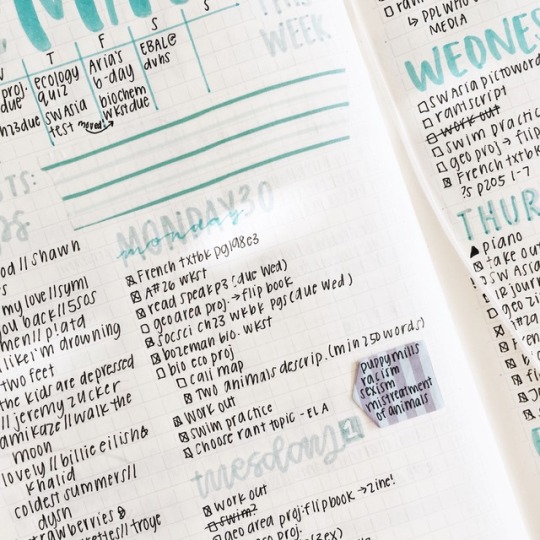 THIS
WEEK
T F S S
proj. due
ecology quiz
Aria's b-day
EBAL@ dvhs
ch23 due
SW Asia test
moved!
biochem wkst due
MONDAY 30
monday
French txtbk pg198e3
A#26 wkst
read speak P3 (due Wed)
geo area proj → flip book
socsci ch23 wkbk pgs (due wed)
bozeman bio. wkst
bio eco proj
cali map
Two animals descrip. (min 250 words)
work out
swim practice
choose rant topic - ELA
puppymills
racism
sexism
mistreatment
of animals
tuesday
work out
swim?
geo area proj: flipbook → zine!
// shawn
my love // syml
you back // 5sos
// p!atd
like i'm drowning
two feet
the kids are depressed
// jeremy zucker
kamikaze // walk the
moon
lovely // billie eilish &
khalid
coldest summers //
dysn
strawberries &
// troye
↳ PPL WHO
MEDIA
WEDNES
SW Asia pictoword
rant script
work out
swim practic
geo proj → flip
French txtbk
?s p205 1-7
THUR
piano
take out
SW Asia